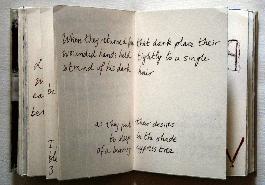 When they returned from that dark place their
wounded hands held tightly to a single
strand of his dark hair
as they put their desires
to sleep in the shade
of a burning cypress tree